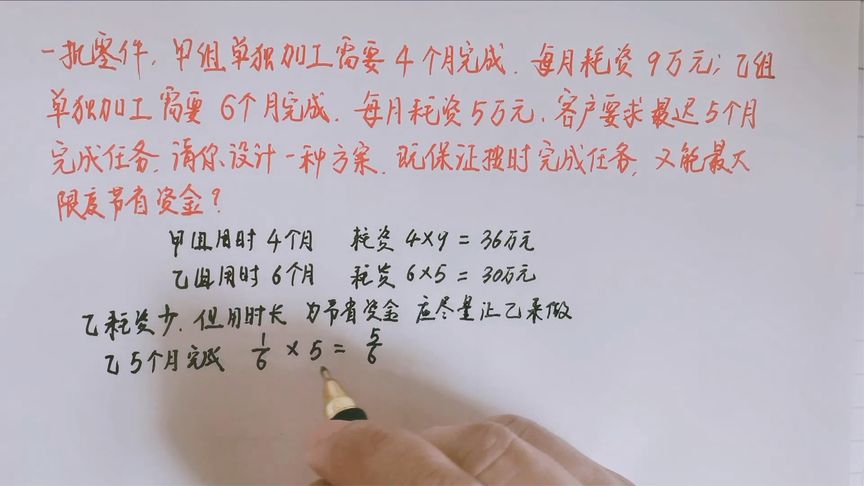 一批零件,甲组单独加工需要4个月完成.每月耗资9万元;乙组
单独加工需要6个月完成.每月耗资5万元.客户要求最迟5个月
完成任务.请你设计一种方案.既保证按时完成任务,又能最大
限度节省资金?
甲组用时4个月 耗资 4×9=36万元
乙组用时6个月 耗资 6×5=30万元
乙耗资少.但用时长 为节省资金 应尽量让乙来做
乙5个月完成 1/6 × 5 = 5/6